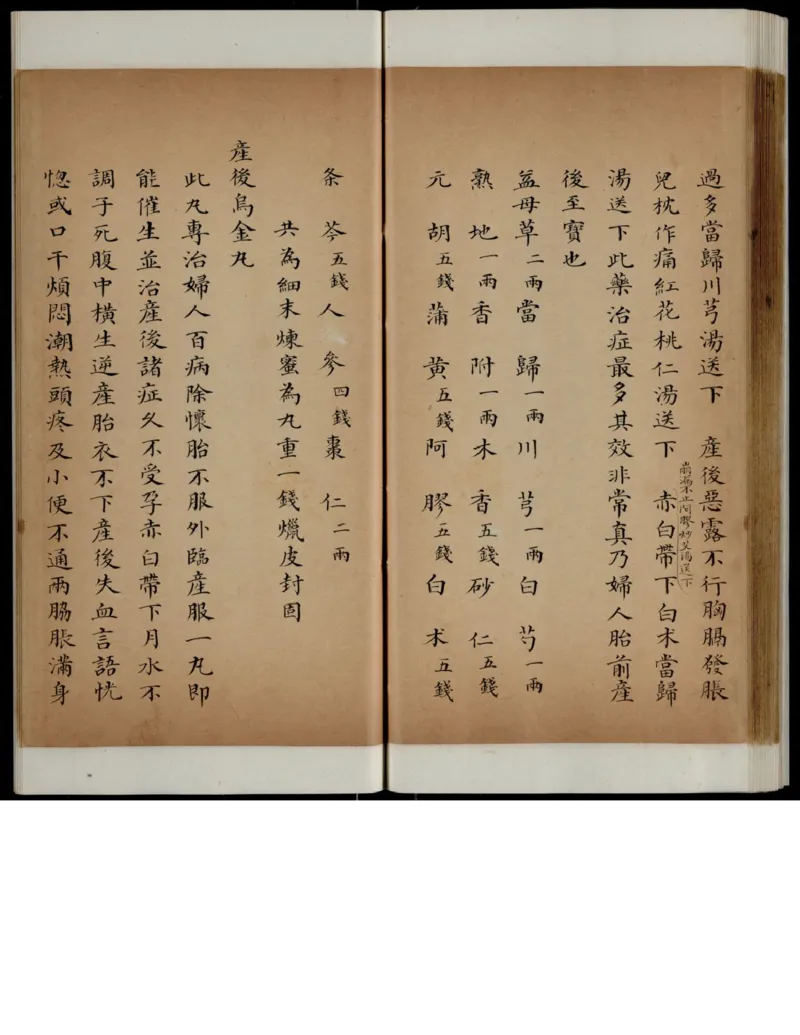 過多當歸川芎湯送下　產後惡露不行胸膈發脹
兒枕作痛紅花桃仁湯送下　赤白帶下白术當歸
崩漏不止阿膠炒艾湯送下
湯送下此藥治症最多其效非常真乃婦人胎前產
後至寶也
益母草二兩當　歸一兩川　芎一兩白　芍一兩
熟　地一兩香　附一兩木　香五錢砂　仁五錢
元　胡五錢蒲　黃五錢阿　膠五錢白　术五錢
条　芩五錢人　參四錢棗　仁二兩
共為細末煉蜜為丸重一錢蠟皮封固
產後烏金丸
此丸專治婦人百病除懷胎不服外臨產服一丸即
能催生並治產後諸症久不受孕赤白帶下月水不
調子死腹中橫生逆產胎衣不下產後失血言語恍
惚或口干煩悶潮熱頭疼及小便不通兩脇脹滿身